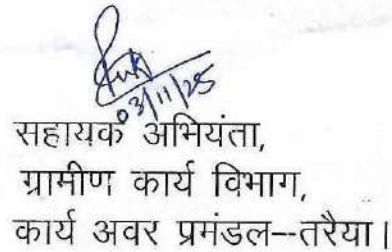 03/11/25
सहायक अभियंता,
ग्रामीण कार्य विभाग,
कार्य अवर प्रमंडल--तरैया।